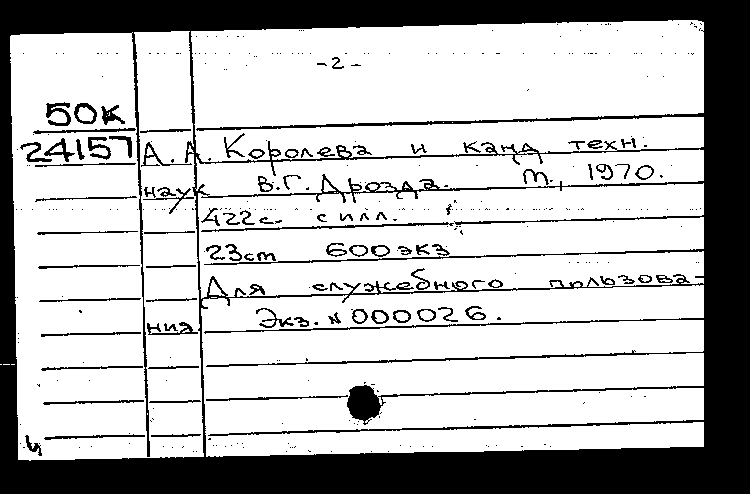 -2-
50к
24157
А.А. Королева и канд. техн.
наук В.Г. Дрозда. М., 1970.
422с. с илл.
23см 600экз
Для служебного пользова-
ния. Экз. №000026.